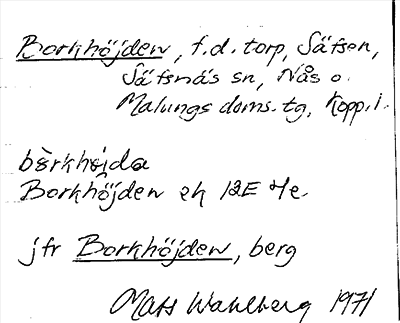 Borkhöjden, f.d. torp, Säfsen,
Säfsnäs sn, Nås o.
Malungs doms. tg, Kopp.l.
bòrkhöjda
Borkhöjden ek 12E 4e
jfr Borkhöjden, berg
Mats Wahlberg 1971